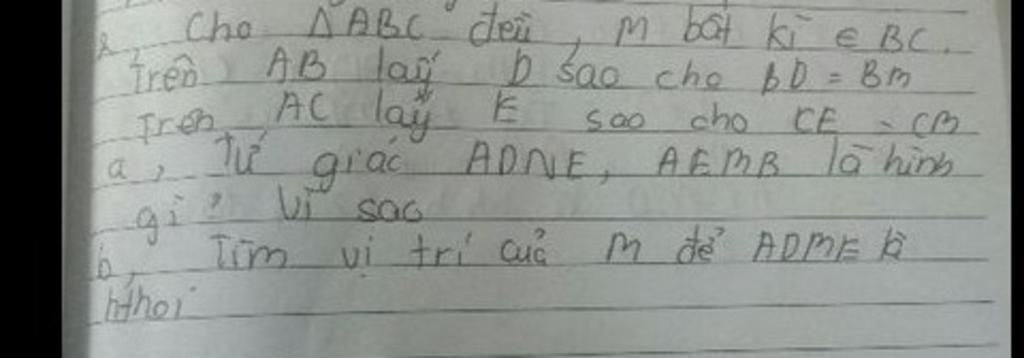 2, Cho ΔABC đều, M bất kì ∈ BC.
Trên AB lấy D sao cho BD = BM
Trên AC lấy E sao cho CE = CM
a, Tứ giác ADNE, AEMB là hình
gì? Vì sao
b, Tìm vị trí của M để ADME là
hthoi